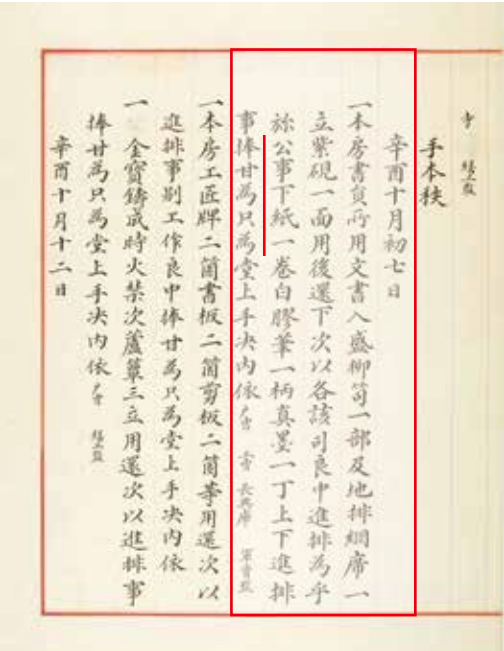 繕工監
手本秩
辛酉十月初七日
一本房書員所用文書入盛柳笥一部及地排網席一
立紫硯一面用後還下次以各該司良中進排為乎
旀公事下紙一卷白膠筆一柄真墨一丁上下進排
事捧甘為只為堂上手决内依 長興庫 軍資監
一本房工匠牌二箇書板二箇剪板二箇等用還次以
進排事別工作良中捧甘為只為堂上手决内依
一 金寶鑄成時火禁次蘆簟三立用還次以進排事
捧甘為只為堂上手决内依 繕工監
辛酉十月十二日